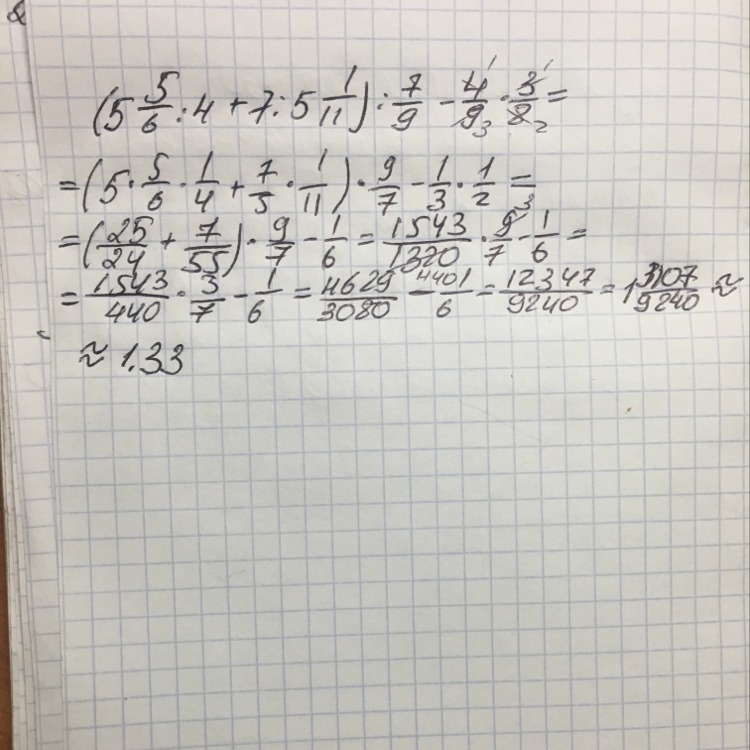 (5 5/6 : 4 + 7 : 5 1/11) : 7/9 - 4/9 · 3/8 =
= (5 · 5/6 · 1/4 + 7/5 · 1/11) · 9/7 - 1/3 · 1/2 =
= (25/24 + 7/55) · 9/7 - 1/6 = 1543/1320 · 9/7 - 1/6 =
= 1543/440 · 3/7 - 1/6 = 4629/3080 - 1/6 = 12347/9240 = 1 3107/9240 ≈
≈ 1.33